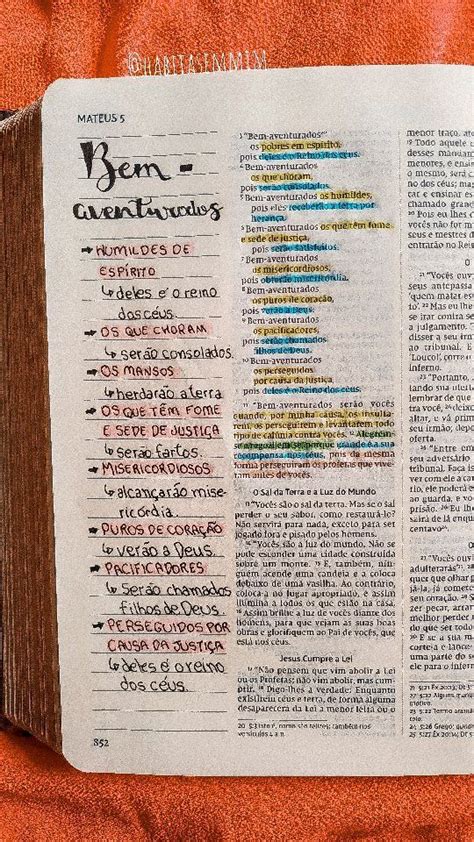 @HABITASEMMIM
MATEUS 5
Bem-
aventurados
→ HUMILDES DE
ESPÍRITO
↳ deles é o reino
dos céus.
→ OS QUE CHORAM
↳ serão consolados.
→ OS MANSOS
↳ herdarão a terra
→ OS QUE TÊM FOME
E SEDE DE JUSTIÇA
↳ serão fartos.
→ MISERICORDIOSOS
↳ alcançarão mise-
ricórdia.
→ PUROS DE CORAÇÃO
↳ verão a Deus.
→ PACIFICADORES
↳ serão chamados
filhos de Deus.
→ PERSEGUIDOS POR
CAUSA DA JUSTIÇA
↳ deles é o reino
dos céus.
852
3 "Bem-aventurados
os pobres em espírito,
pois deles é o Reino dos céus.
4 Bem-aventurados
os que choram,
pois serão consolados.
5 Bem-aventurados os humildes,
pois eles receberão a terra por
herança.
6 Bem-aventurados os que têm fome
e sede de justiça,
pois serão satisfeitos.
7 Bem-aventurados
os misericordiosos,
pois obterão misericórdia.
8 Bem-aventurados
os puros de coração,
pois verão a Deus.
9 Bem-aventurados
os pacificadores,
pois serão chamados
filhos de Deus.
10 Bem-aventurados
os perseguidos
por causa da justiça,
pois deles é o Reino dos céus.
11 "Bem-aventurados serão vocês
quando, por minha causa, os insulta-
rem, os perseguirem e levantarem todo
tipo de calúnia contra vocês. 12 Alegrem-
se e regozijem-se, porque grande é a sua
recompensa nos céus, pois da mesma
forma perseguiram os profetas que vive-
ram antes de vocês.
O Sal da Terra e a Luz do Mundo
13 "Vocês são o sal da terra. Mas se o sal
perder o seu sabor, como restaurá-lo?
Não servirá para nada, exceto para ser
jogado fora e pisado pelos homens.
14 "Vocês são a luz do mundo. Não se
pode esconder uma cidade construída
sobre um monte. 15 E, também, nin-
guém acende uma candeia e a coloca
debaixo de uma vasilha. Ao contrário,
coloca-a no lugar apropriado, e assim
ilumina a todos os que estão na casa.
16 Assim brilhe a luz de vocês diante dos
homens, para que vejam as suas boas
obras e glorifiquem ao Pai de vocês, que
está nos céus.
Jesus Cumpre a Lei
17 "Não pensem que vim abolir a Lei
ou os Profetas; não vim abolir, mas cum-
prir. 18 Digo-lhes a verdade: Enquanto
existirem céus e terra, de forma alguma
desaparecerá da Lei a menor letra ou o
menor traço, at
19 Todo aquele
desses mandam
menores, e ensi
o mesmo, será c
no dos céus; ma
car e ensinar es
chamado grand
20 Pois eu lhes
vocês não for m
seus e dos mest
entrarão no Rei
21 "Vocês ouvi
seus antepassa
'quem matar es
22 Mas eu
se irar contra se
a julgamento.
ao tribunal. E
'Louco!', corre
inferno.
23 "Portanto,